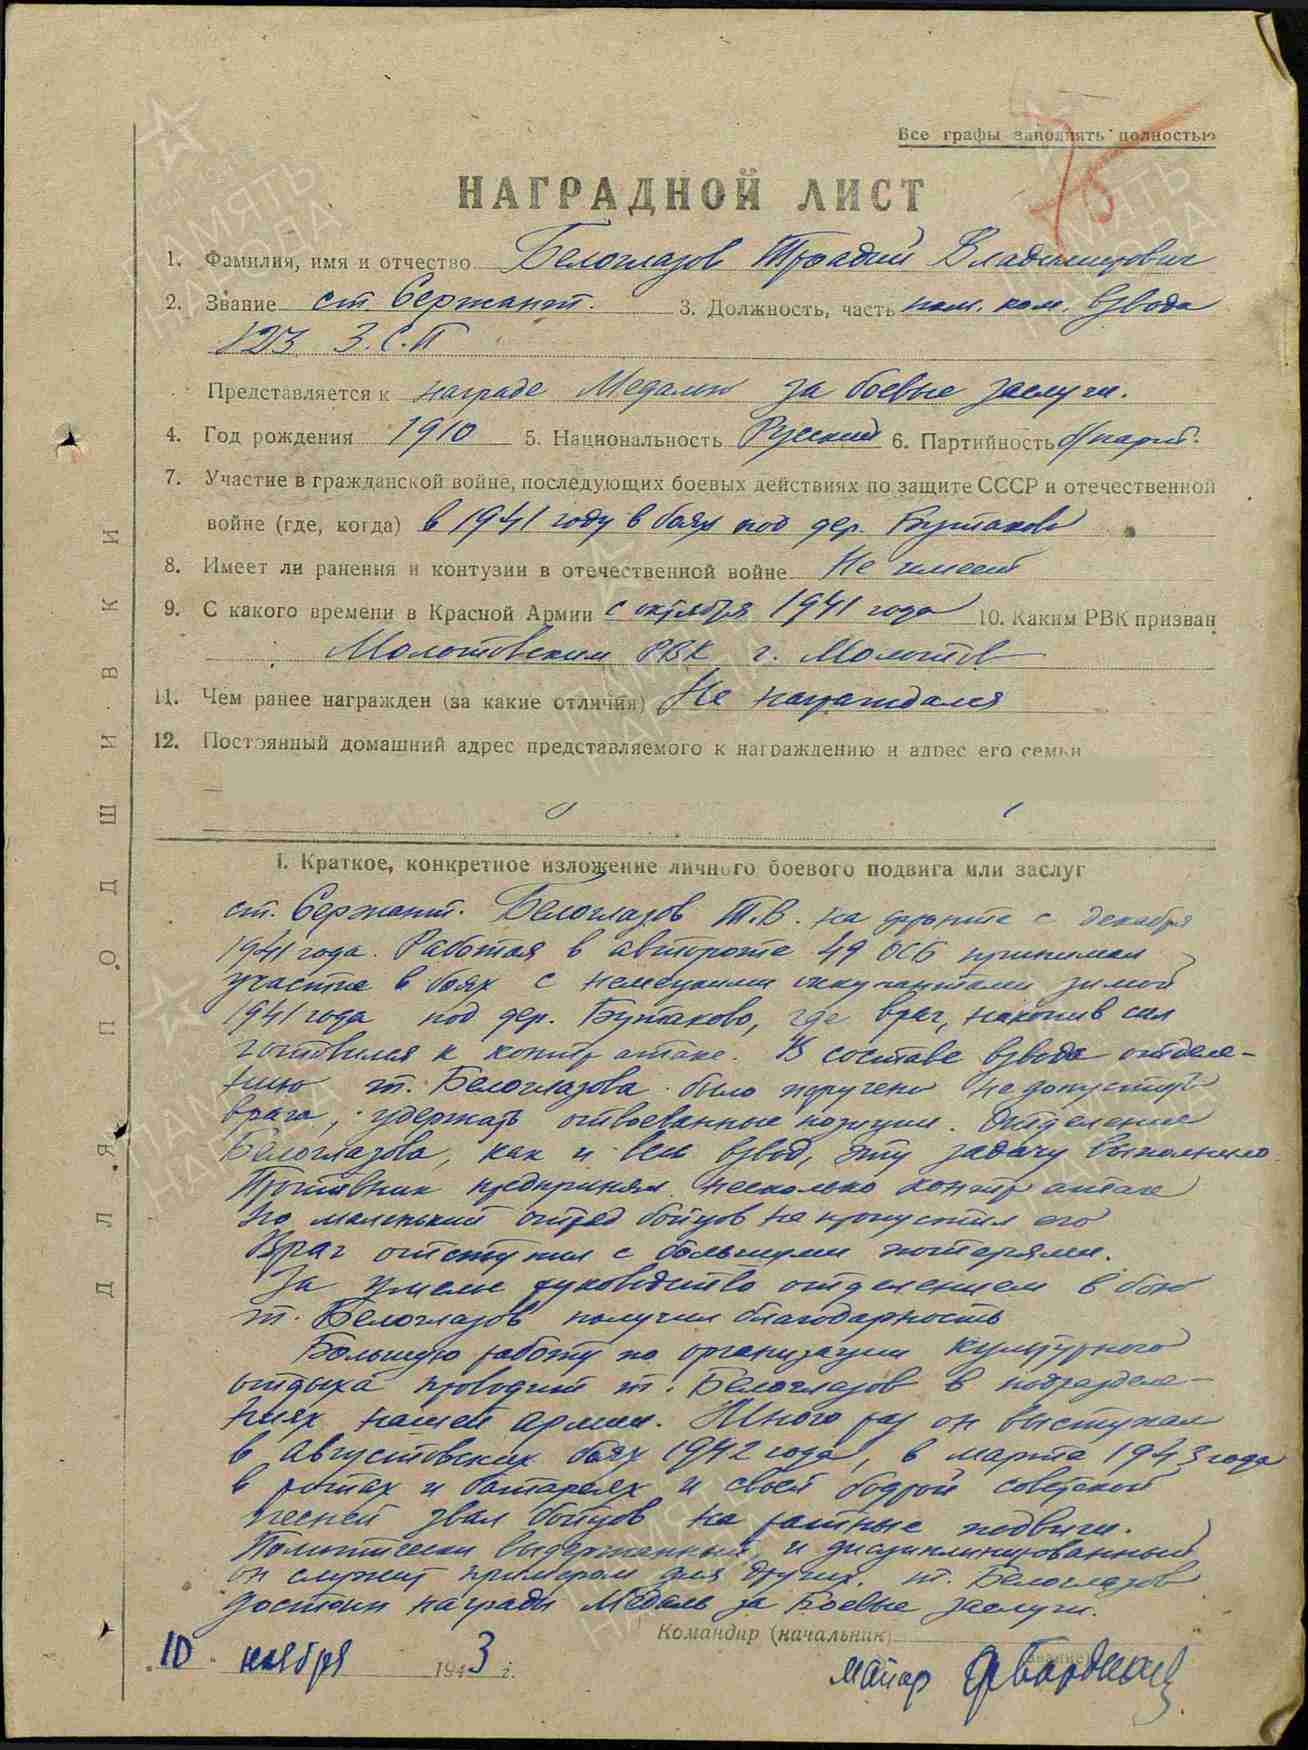 Все графы заполнять полностью
75
НАГРАДНОЙ ЛИСТ
1. Фамилия, имя и отчество Белоглазов Владимирович
2. Звание ст. Сержант. 3. Должность, часть пом. ком. взвода
123 З.С.П
Представляется к награде Медалью за боевые заслуги.
4. Год рождения 1910 5. Национальность Русский 6. Партийность б/парт.
7. Участие в гражданской войне, последующих боевых действиях по защите СССР и отечественной
войне (где, когда) в 1941 году в боях под дер. Бутаково
8. Имеет ли ранения и контузии в отечественной войне Не имеет
9. С какого времени в Красной Армии с октября 1941 года 10. Каким РВК призван
Молотовским РВК г. Молотов
11. Чем ранее награжден (за какие отличия) Не награждался
12. Постоянный домашний адрес представляемого к награждению и адрес его семьи
I. Краткое, конкретное изложение личного боевого подвига или заслуг
ст. Сержант. Белоглазов Т.В. на фронте с декабря
1941 года. Работая в автороте 49 ОСБ принимал
участие в боях с немецкими оккупантами зимой
1941 года под дер. Бутаково, где враг, накопив сил
готовился к контр атаке. В составе взвода отделе-
нию т. Белоглазова было поручено не допустить
врага, удержать отвоеванные позиции. Отделение
Белоглазова, как и весь взвод, эту задачу выполнило.
Противник предпринял несколько контр атак
но маленький отряд бойцов не пропустил его
Враг отступил с большими потерями.
За умелое руководство отделением в бою
т. Белоглазов получил благодарность
Большую работу по организации культурного
отдыха проводит т. Белоглазов в подразделе-
ниях нашей армии. Много раз он выступал
в августовских боях 1942 года, в марте 1943 года
в ротах и батареях и своей бодрой советской
песней звал бойцов на ратные подвиги.
Политически выдержанный и дисциплинированный
он служит примером для других. т. Белоглазов
достоин награды Медаль за Боевые заслуги.
Командир (начальник)
(звание)
10 ноября 1943 г.
майор
ДЛЯ ПОДШИВКИ
ПАМЯТЬ НАРОДА